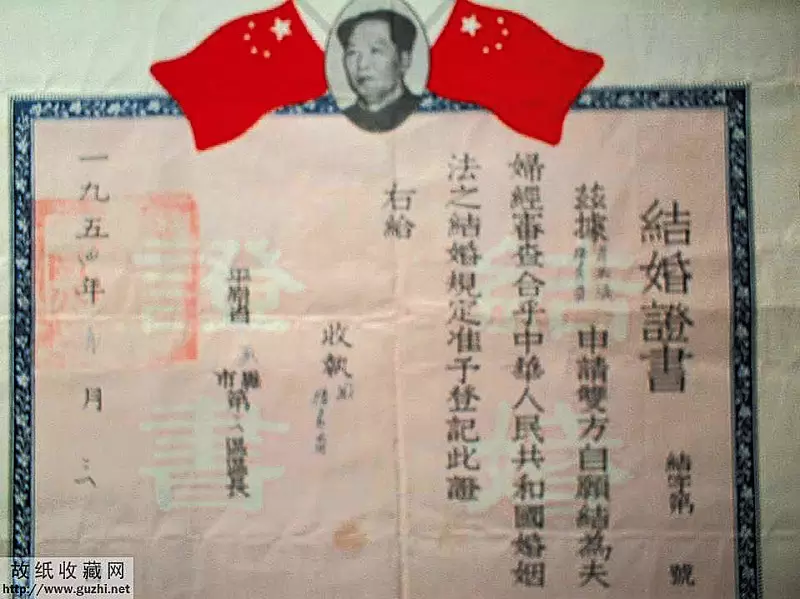 結婚證書
結字第 號
茲據 申請雙方自願結為夫
婦經審查合乎中華人民共和國婚姻
法之結婚規定准予登記此證
右給
收執
平原省 縣
市第 區區長
一九五 年 月
結婚
證書
故纸收藏网
http://www.guzhi.net